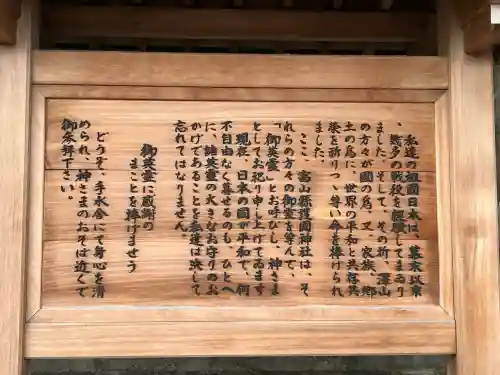 私達の祖国日本は、幕末以来
、幾多の戦役を経験してまゐり
ました。そして、その折、深山
の方々が国の為、又、家族、郷
土の為に、世界の平和と共存共
榮を祈りつゝ尊い命を捧げられ
ました。
ここ、富山縣護國神社は、そ
れらの方々の御霊を尊んで、
「御英霊」とお呼びし、神さま
としてお祀り申し上げてゐます
現在、日本の国が平和で、何
不自由なく暮せるのも、ひとへ
に、諸英霊の大きなお守りのお
かげであることを私達は決して
忘れてはなりません。
御英霊に感謝の
まことを捧げませう
どうぞ、手水舎にて身心を清
められ、神さまのおそば近くで
御参拝下さい。